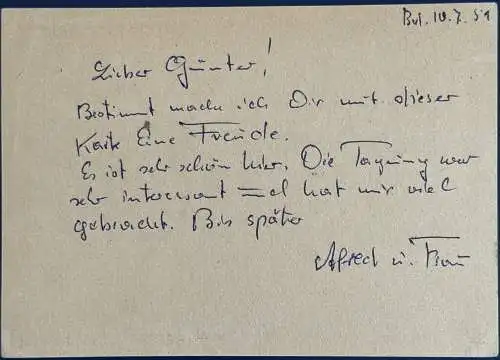 Bul. 10.7.59
Lieber Günter!
Bestimmt mache ich Dir mit dieser
Karte Eine Freude.
Es ist sehr schön hier. Die Tagung war
sehr interessant = hat mir viel
gebracht. Bis später
Alfred u. Frau